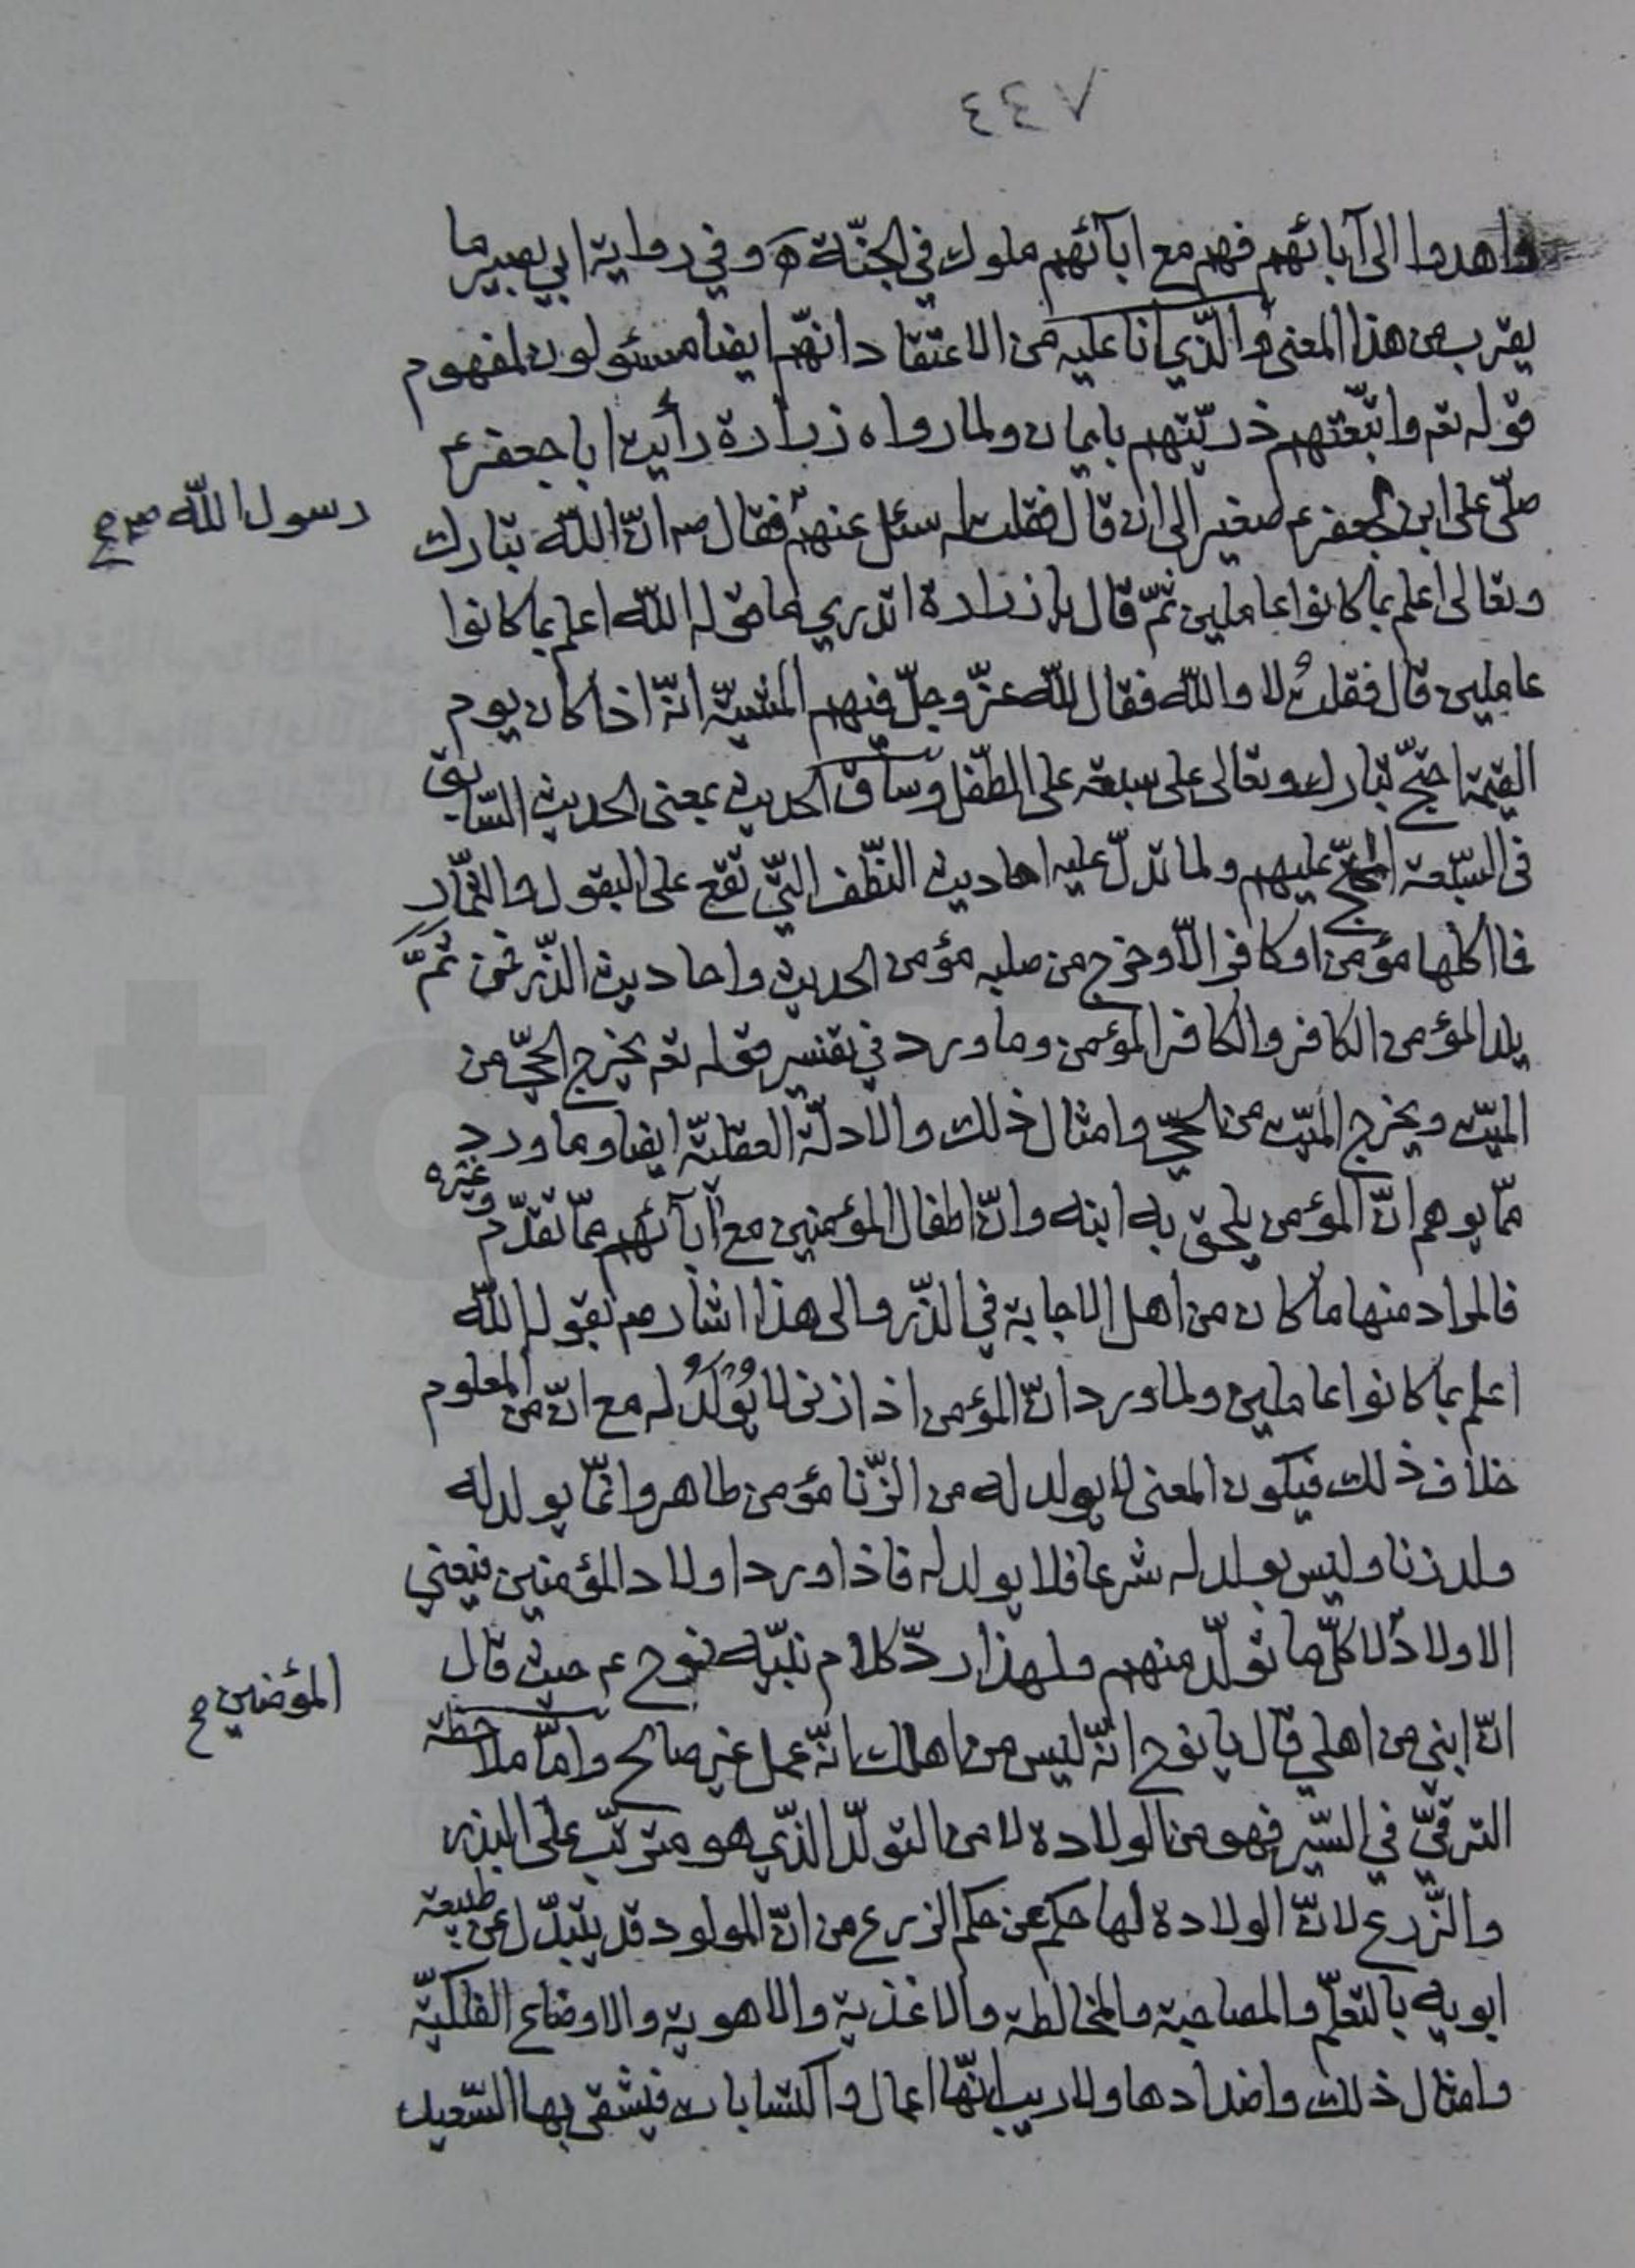 ٧٤٤
واهدوا الى آبائهم فهم مع ابآئهم ملوك في الجنّة ه وفي رواية ابي بصير ما
يقرب من هذا المعنى والّذي انا عليه من الاعتقاد انّهم ايضا مسئولون لمفهوم
قوله تعـ واتبّعتهم ذريّتهم بايمان ولما رواه زرارة رأيت ابا جعفر ع
صلّى على ابن لجعفر ع صغير الى ان قال فقلت له سئل عنهم فقال صـ انّ اللّه تبارك
رسول اللّه صـ ع
وتعالى اعلم بما كانوا عاملين ثمّ قال يا زرارة اتدري ما قوله اللّه اعلم بما كانوا
عاملين قال فقلت لا واللّه فقال للّه عزّ وجلّ فيهم المشيّة انّه اذا كان يوم
القيمة احتجّ تبارك وتعالى على سبعة على الطّفل وساق الحديث بمعنى الحديث السّابق
فى السّبعة المحتجّ عليهم ولما تدلّ عليه احاديث النّطف الّتي تقع على البقول والثمّار
فما اكلها مؤمن او كافر الّا وخرج من صلبه مؤمن الحديث واحاديث الذّر فمن ثمّ
يلد المؤمن الكافر والكافر المؤمن وما ورد في تفسير قوله تعـ يخرج الحيّ من
الميّت ويخرج الميّت من الحيّ وامثال ذلك والادلّة العقليّة ايضا وما ورد
ممّا يوهم انّ المؤمن يلحق به ابنه وانّ اطفال المؤمنين مع آبآئهم ممّا تقدّم وغيره
فالمراد منها ما كان من اهل الاجابة في الذّر والى هذا اشار صـ بقوله اللّه
اعلم بما كانوا عاملين ولما ورد انّ المؤمن اذا زنى لا يُولَدُ له مع انّ من المعلوم
خلاف ذلك فيكون المعنى لا يولد له من الزّنا مؤمن طاهر وانّما يولد له
ولد زنا وليس بولد له شرعا فلا يولد له فاذا ورد اولاد المؤمنين فيعني
الاولاد لا كلّ ما تولّد منهم ولهذا ردّ كلام نبيّه نوح ع حيث قال
المؤمنين ع
انّ ابني من اهلي قال يا نوح انّه ليس من اهلك انّه عمل غير صالح وامّا ملاحظة
الترقّي في السّير فهو من الولادة لا من التولّد الّذي هو مترتّب على البذر
والزّرع لانّ الولادة لها حكم عن حكم الزرع من انّ المولود قد يتبدّل عن طبيعة
ابويه بالتعلّم والمصاحبة والمخالطة والاغذية والاهوية والاوضاع الفلكيّة
وامثال ذلك واضدادها ولا ريب انّها اعمال واكتسابات فيشقى بها السّعيد